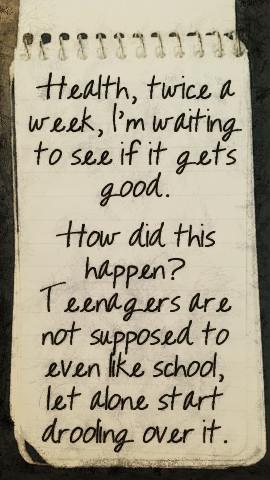 Health, twice a
week, I'm waiting
to see if it gets
good.
How did this
happen?
Teenagers are
not supposed to
even like school,
let alone start
drooling over it.